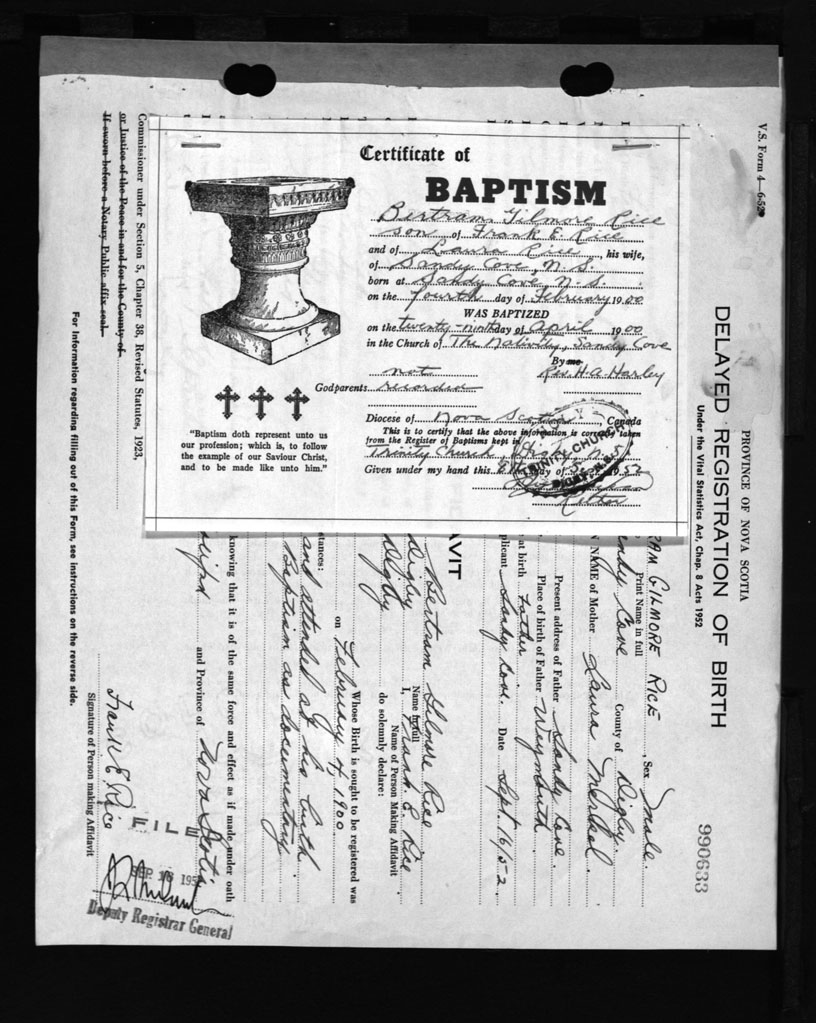 Certificate of
BAPTISM
Bertram Gilmore Rice
son of Frank E. Rice
and of Laura Rice, his wife,
of Sandy Cove, N.S.
born at Sandy Cove, N.S.
on the fourth day of February 1900
WAS BAPTIZED
on the twenty-ninth day of April 1900
in the Church of The Nativity, Sandy Cove
By me
Rev. H. A. Harley
not
Godparents recorded
Diocese of Nova Scotia Canada
This is to certify that the above information is correctly taken
from the Register of Baptisms kept in
Trinity Church, Digby, N.S.
Given under my hand this day of Sept 1952
Rector
TRINITY CHURCH
DIGBY, N.S.
"Baptism doth represent unto us
our profession; which is, to follow
the example of our Saviour Christ,
and to be made like unto him."
V.S. Form 4—6-52
PROVINCE OF NOVA SCOTIA
DELAYED REGISTRATION OF BIRTH
Under the Vital Statistics Act, Chap. 8 Acts 1952
990633
RAM GILMORE RICE, Sex male.
Print Name in full
andy Cove County of Digby
N NAME of Mother Laura Merkel
Present address of Father Sandy Cove
Place of birth of Father Weymouth
at birth Father
plicant Sandy Cove. Date Sept. 16/52
AVIT
Bertram Gilmore Rice
Name in full
Digby I, Frank E. Rice
Name of Person Making Affidavit
Digby do solemnly declare:
Whose Birth is sought to be registered was
on February 4, 1900
stances:
and attended at his birth
Baptism as documentary
knowing that it is of the same force and effect as if made under oath
and Province of Nova Scotia
Frank E. Rice
Signature of Person making Affidavit
FILE
SEP 18 195
Deputy Registrar General
Commissioner under Section 5, Chapter 38, Revised Statutes, 1923,
or Justice of the Peace in and for the County of
If sworn before a Notary Public affix seal.
For information regarding filling out of this Form, see instructions on the reverse side.